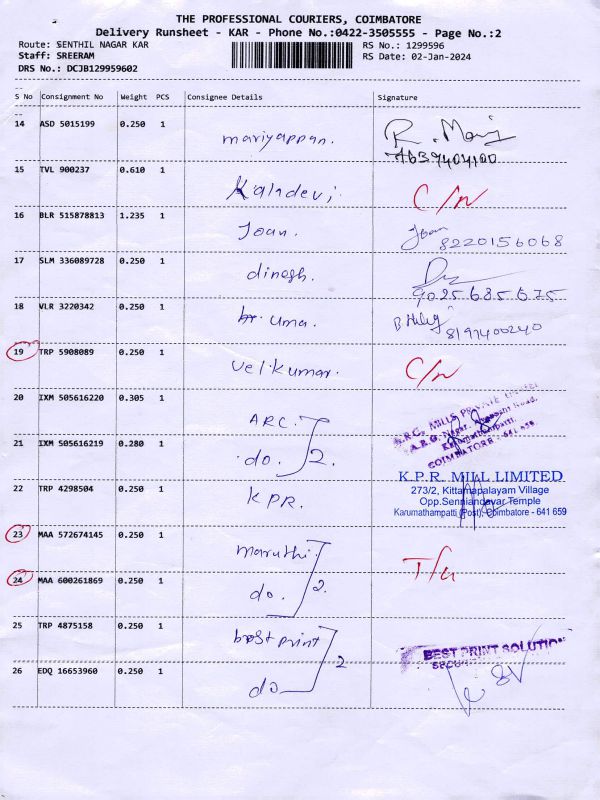 THE PROFESSIONAL COURIERS, COIMBATORE
Delivery Runsheet - KAR - Phone No.:0422-3505555 - Page No.:2
Route: SENTHIL NAGAR KAR RS No.: 1299596
Staff: SREERAM RS Date: 02-Jan-2024
DRS No.: DCJB129959602
S No Consignment No Weight PCS Consignee Details Signature
14 ASD 5015199 0.250 1 mariyappan.
15 TVL 900237 0.610 1 Kaladevi C/N
16 BLR 515878813 1.235 1 Joan. Joan
8220156068
17 SLM 336089728 0.250 1 dinesh.
9025685675
18 VLR 3220342 0.250 1 uma.
8197400240
19 TRP 5908089 0.250 1 Velkumar. C/N
20 IXM 505616220 0.305 1 ARC.
A.R.C. MILLS PRIVATE LIMITED
COIMBATORE - 641 659
21 IXM 505616219 0.280 1 do. 2.
22 TRP 4298504 0.250 1 KPR.
K.P.R. MILL LIMITED
273/2, Kittampalayam Village
Opp.Senniandavar Temple
Karumathampatti (Post), Coimbatore - 641 659
23 MAA 572674145 0.250 1 maruthi
24 MAA 600261869 0.250 1 do. 2.
25 TRP 4875158 0.250 1 best print
BEST PRINT SOLUTION
26 EDQ 16653960 0.250 1 do 2